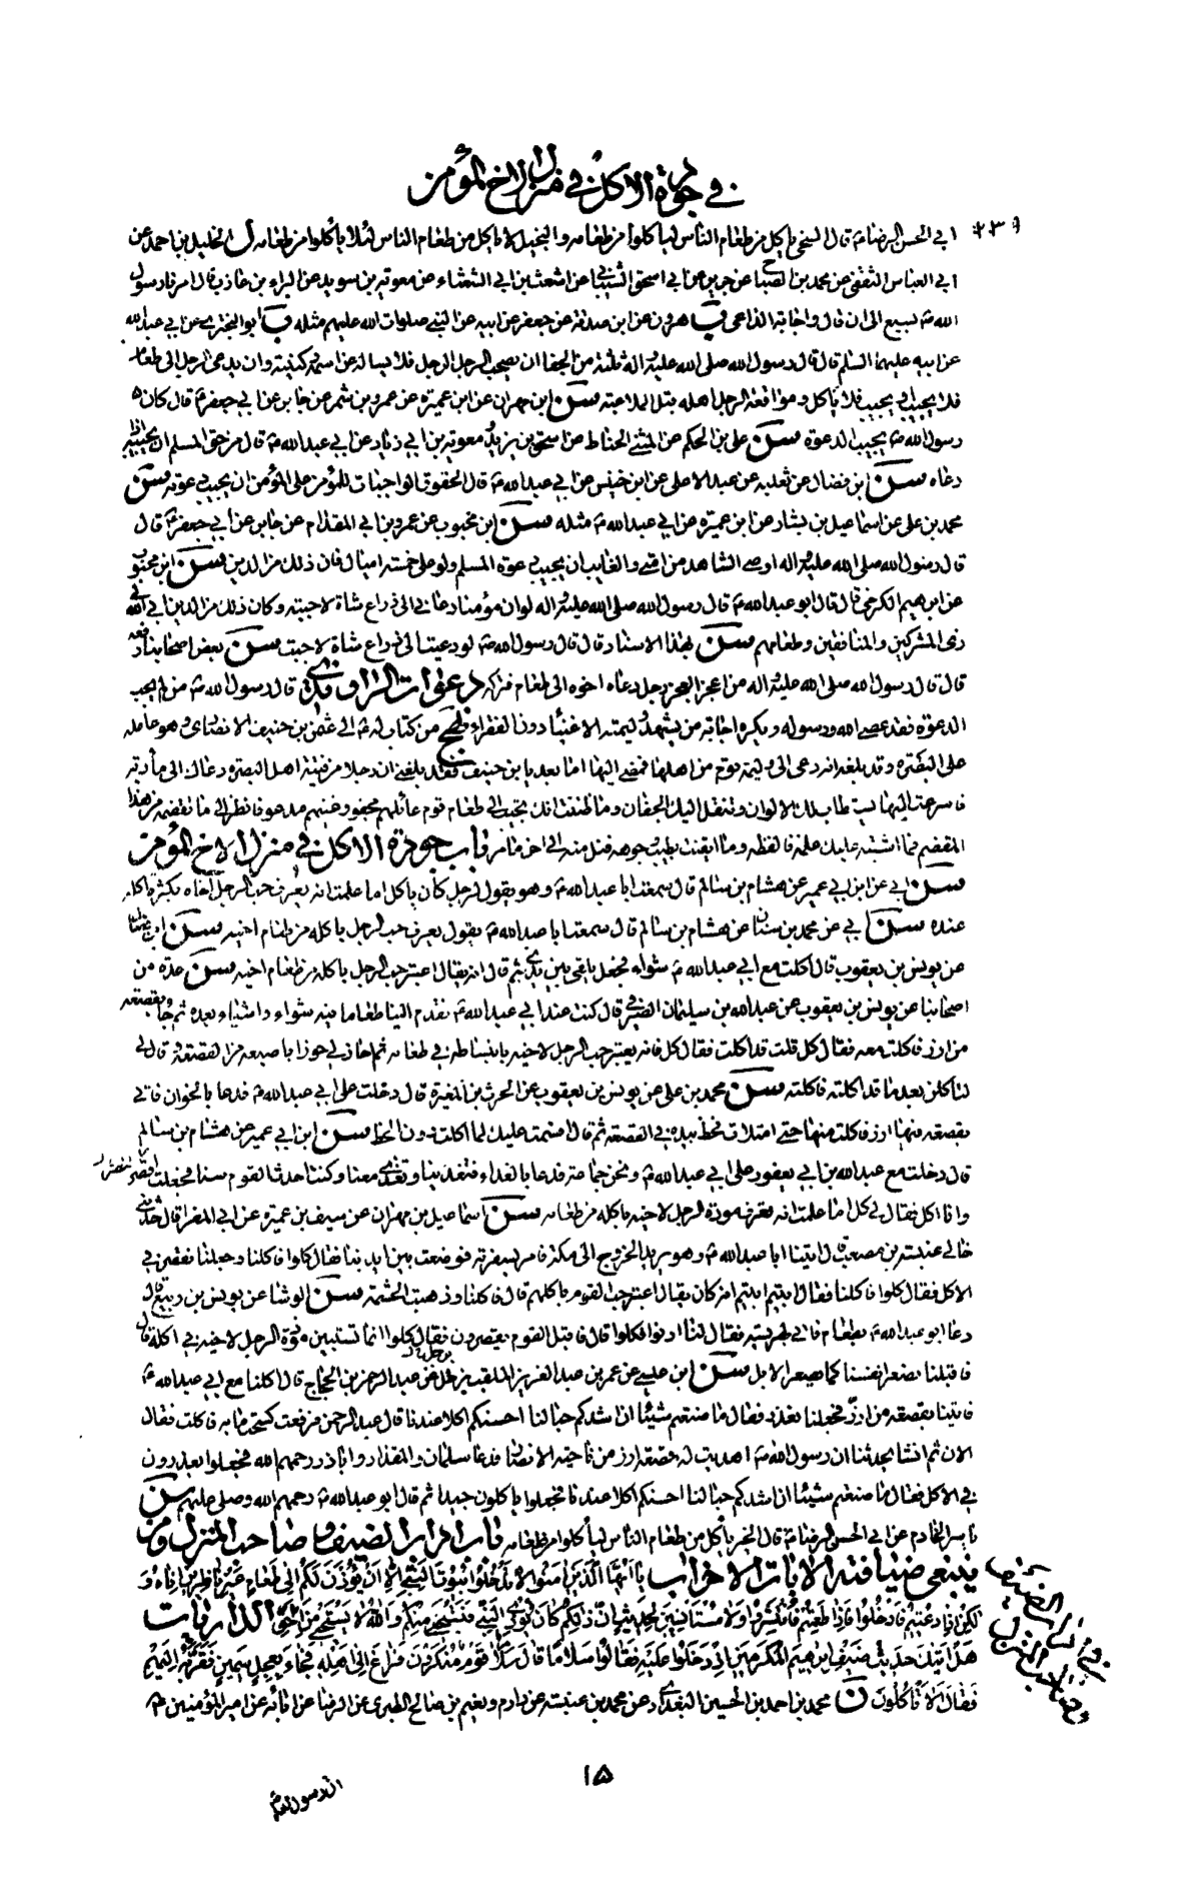 في جودة الاكل في منزل الاخ المؤمن
٢٣٨
ابي الحسن الرضا ع قال السخي ياكل من طعام الناس ليأكلوا من طعامه والبخيل لا ياكل من طعام الناس لئلا يأكلوا من طعامه ل الخليل بن احمد عن
ابي العباس الثقفي عن محمد بن الصباح عن جرير عن ابي اسحق الشيباني عن اشعث بن ابي الشعثاء عن معوية بن سويد عن البراء بن عازب قال امرنا رسول
الله ص بسبع الى ان قال واجابة الداعي ب هرون عن ابن صدقة عن جعفر عن ابيه عن النبي صلوات الله عليهم مثله ب ابو البختري عن ابي عبدالله
عن ابيه عليهما السلم قال قال رسول الله صلى الله عليه واله ثلثة من الجفا ان يصحب الرجل الرجل فلا يساله عن اسمه وكنيته وان يدعى الرجل الى طعام
فلا يجيب او يجيب فلا ياكل ومواقعة الرجل اهله قبل الملاعبة سن ابن مهران عن ابن عميرة عن عمرو بن شمر عن جابر عن ابي جعفر ع قال كان
رسول الله ص يجيب الدعوة سن علي بن الحكم عن المثنى الحناط عن اسحق بن يزيد ومعوية بن ابي زياد عن ابي عبدالله ع قال من حق المسلم ان يجيبه اذا
دعاه سن ابن فضال عن ثعلبه عن عبد الاعلى عن ابن خنيس عن ابي عبدالله ع قال الحقوق الواجبات للمؤمن على المؤمن ان يجيب دعوته سن
محمد بن علي عن اسماعيل بن بشار عن ابن عميرة عن ابي عبدالله ع مثله سن ابن محبوب عن عمرو بن ابي المقدام عن جابر عن ابي جعفر ع قال
قال رسول الله صلى الله عليه واله اوصي الشاهد من امتي والغايب ان يجيب دعوة المسلم ولو على خمسة اميال فان ذلك من الدين سن ابن محبوب
عن ابرهيم الكرخي قال قال ابو عبدالله ع قال رسول الله صلى الله عليه واله لو ان مؤمنا دعاني الى ذراع شاة لاجبته وكان ذلك من الدين ابى الله لي
زي المشركين والمنافقين وطعامهم سن بهذا الاسناد قال قال رسول الله ص لو دعيت الى ذراع شاة لاجبت سن بعض اصحابنا رفعه
قال قال رسول الله صلى الله عليه واله من اعجز العجز رجل دعاه اخوه الى طعام فتركه دعوات الراوندي قال رسول الله ص من لم يجب
الدعوة فقد عصى الله ورسوله ويكره اجابة من يشهد وليمته الاغنيا دون الفقراء نهج من كتاب له ع الى عثمن بن حنيف الانصاري وهو عامله
على البصرة وقد بلغه انه دعي الى وليمة قوم من اهلها فمضى اليها اما بعد يا بن حنيف فقد بلغني ان رجلا من فتية اهل البصرة دعاك الى مأدبة
فاسرعت اليها تستطاب لك الالوان وتنقل اليك الجفان وما ظننت انك تجيب الى طعام قوم عائلهم مجفو وغنيهم مدعو فانظر الى ما تقضمه من هذا
المقضم فما اشتبه عليك علمه فالفظه وما ايقنت بطيب وجوهه فنل منه الى اخر ما مر باب جودة الاكل في منزل الاخ المؤمن
سن ابي عن ابن ابي عمير عن هشام بن سالم قال سمعت ابا عبدالله ع وهو يقول لرجل كان ياكل اما علمت انه يعرف حب الرجل اخاه بكثرة اكله
عنده سن ابي عن محمد بن سنان عن هشام بن سالم قال سمعت ابا عبدالله ع يقول يعرف حب الرجل باكله من طعام اخيه سن
عن يونس بن يعقوب قال اكلت مع ابي عبدالله ع شواء فجعل يلقي بين يدي ثم قال انه يقال اعتبر حب الرجل باكله من طعام اخيه سن عدة من
اصحابنا عن يونس بن يعقوب عن عبدالله بن سليمان الصيرفي قال كنت عند ابي عبدالله ع فقدم الينا طعاما فيه شواء واشياء بعده ثم جاء بقصعة
من ارز فاكلت معه فقال كل قلت قد اكلت فقال كل فانه يعتبر حب الرجل لاخيه بانبساطه في طعامه ثم حاز لي حوزا باصبعه من القصعة وقال لي
لتاكلن بعد ما قد اكلته فاكلته سن محمد بن علي عن يونس بن يعقوب عن الحرث بن المغيرة قال دخلت على ابي عبدالله ع فدعا بالخوان فاتى
بقصعة فيها ارز فاكلت منها حتى امتلات فخط بيده في القصعة ثم قال اقسمت عليك لما اكلت دون الخط سن ابن ابي عمير عن هشام بن سالم
قال دخلت مع عبدالله بن ابي يعفور على ابي عبدالله ع ونحن جماعة فدعا بالغداء فتغدينا وتغدى معنا وكنت احدث القوم سنا فجعلت اقصر
وانا اكل فقال لي كل اما علمت انه تعرف مودة الرجل لاخيه باكله من طعامه سن اسماعيل بن مهران عن سيف بن عميرة عن ابي المغرا قال حدثني
خالي عنبسة بن مصعب قال اتينا ابا عبدالله ع وهو يريد الخروج الى مكة فامر بسفرته فوضعت بين ايدينا فقال كلوا فاكلنا وجعلنا نقصر في
الاكل فقال كلوا فاكلنا فقال ابيتم ابيتم انه كان يقال اعتبر حب القوم باكلهم قال فاكلنا وذهبت الحشمة سن الوشا عن يونس بن ربيع قال
دعا ابو عبدالله ع بطعام فاتي بهريسة فقال لنا ادنوا فكلوا قال فاقبل القوم يقصرون فقال كلوا انما تستبين مودة الرجل لاخيه في اكله قال
فاقبلنا نصعر انفسنا كما يصعر الابل سن ابن عيسى عن عمر بن عبد العزيز الملقب بزحل عن عبد الرحمن بن الحجاج قال اكلنا مع ابي عبدالله ع
فاتينا بقصعة من ارز فجعلنا نعذر فقال ما صنعتم شيئا ان اشدكم حبا لنا احسنكم اكلا عندنا قال عبد الرحمن فرفعت كسحة ما به فاكلت فقال
الان ثم انشا يحدثنا ان رسول الله ص اهديت له قصعة ارز من ناحية الانصار فدعا سلمان والمقداد وابا ذر رحمهم الله فجعلوا يعذرون
في الاكل فقال ما صنعتم شيئا ان اشدكم حبا لنا احسنكم اكلا عندنا فجعلوا ياكلون جيدا ثم قال ابو عبدالله ع رحمهم الله وصلى عليهم سن
ياسر الخادم عن ابي الحسن الرضا ع قال الخير ياكل من طعام الناس ليأكلوا من طعامه باب اداب الضيف وصاحب المنزل ومن
ينبغي ضيافته الايات الاحزاب يا ايها الذين امنوا لا تدخلوا بيوت النبي الا ان يؤذن لكم الى طعام غير ناظرين اناه و
لكن اذا دعيتم فادخلوا فاذا طعمتم فانتشروا ولا مستانسين لحديث ان ذلكم كان يؤذي النبي فيستحي منكم والله لا يستحي من الحق الذاريات
هل اتيك حديث ضيف ابرهيم المكرمين اذ دخلوا عليه فقالوا سلاما قال سلام قوم منكرون فراغ الى اهله فجاء بعجل سمين فقربه اليهم
فقال الا تاكلون ن محمد بن احمد بن الحسين البغدادي عن محمد بن عنبسة عن دارم ونعيم بن صالح الطبري عن الرضا عن ابائه عن امير المؤمنين ع
في اداب الضيف
وصاحب المنزل
١٥
ان رسول الله ص